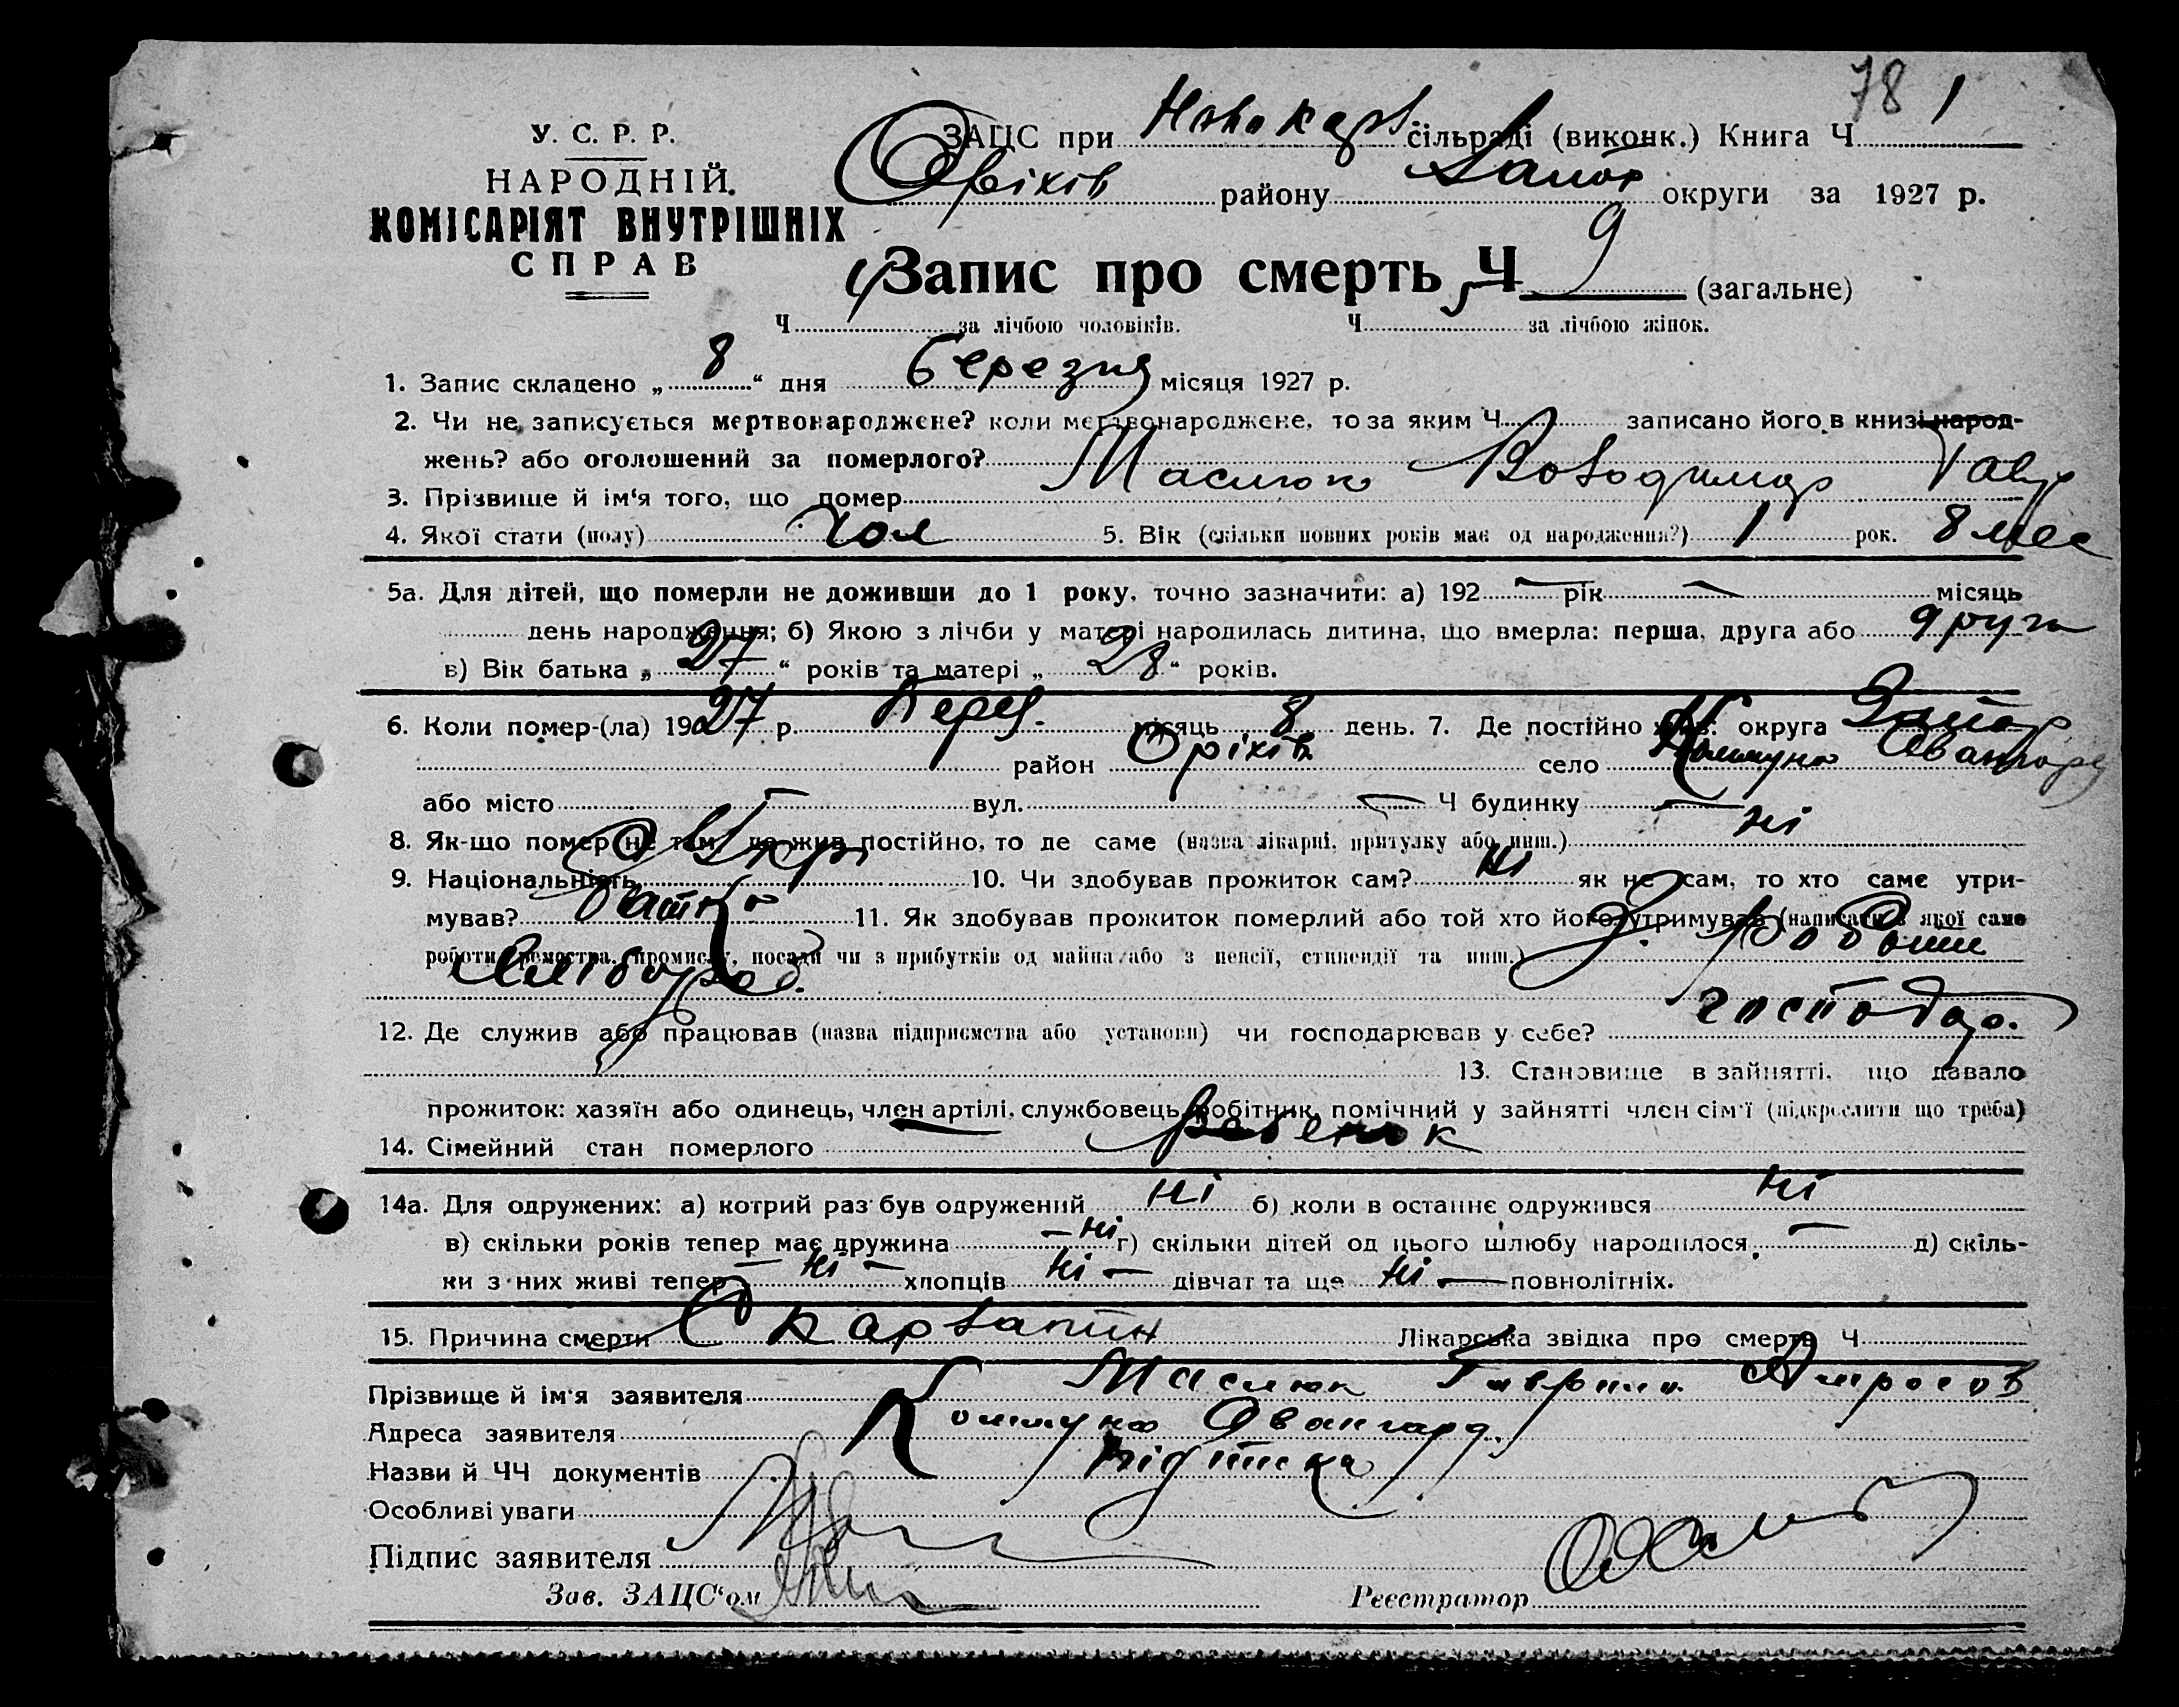 78 1
У. С. Р. Р.
НАРОДНІЙ
КОМІСАРІЯТ ВНУТРІШНІХ
СПРАВ
ЗАЦС при Новокарл сільраді (виконк.) Книга Ч
Оріхів району Запор округи за 1927 р.
Запис про смерть Ч 9 (загальне)
Ч 4 за лічбою чоловіків. Ч 5 за лічбою жінок.
1. Запис складено „ 8 “ дня березня місяця 1927 р.
2. Чи не записується мертвонароджене? коли мертвонароджене, то за яким Ч записано його в книзі народ-
жень? або оголошений за померлого?
3. Прізвище й ім'я того, що помер Маслюк Володимир Гавр
4. Якої стати (полу) чол 5. Вік (скільки повних років має од народження?) 1 рок. 8 мес
5а. Для дітей, що померли не доживши до 1 року, точно зазначити: а) 192 — рік — місяць
день народження; б) Якою з лічби у матері народилась дитина, що вмерла: перша, друга або друга
в) Вік батька „ 27 “ років та матері „ 28 “ років.
6. Коли помер-(ла) 1927 р. Берез. місяць 8 день. 7. Де постійно жив: округа Запор
район Оріхів село Коммуна Авангард
або місто — вул. — Ч будинку —
8. Як-що помер не там, де жив постійно, то де саме (назва лікарні, притулку або инш.) ні
9. Національність Укр 10. Чи здобував прожиток сам? ні як не сам, то хто саме утри-
мував? батько 11. Як здобував прожиток померлий або той хто його утримував (написати з якої саме
роботи, ремества, промислу, посади чи з прибутків од майна або з пенсії, стипендії та инш.) З
Хлібороб.
12. Де служив або працював (назва підприємства або установи) чи господарював у себе? господар.
13. Становище в зайнятті, що давало
прожиток: хазяїн або одинець, член артілі, службовець, робітник, помічний у зайнятті член сім'ї (підкреслити що треба)
14. Сімейний стан померлого ребенок
14а. Для одружених: а) котрий раз був одружений ні б) коли в останнє одружився ні
в) скільки років тепер має дружина — ні г) скільки дітей од цього шлюбу народилося — д) скіль-
ки з них живі тепер — ні — хлопців ні — дівчат та ще ні — повнолітніх.
15. Причина смерти Скарлатин Лікарська звідка про смерть Ч
Прізвище й ім'я заявителя Маслюк Гаврило
Адреса заявителя Коммуна Авангард.
Назви й ЧЧ документів підписка
Особливі уваги
Підпис заявителя
Зав. ЗАЦС'ом Реєстратор